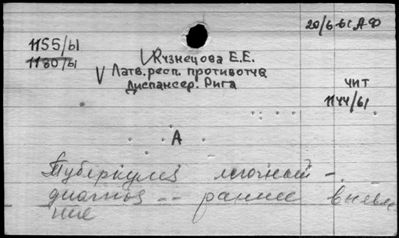 20/6-61 А.Ф
1155/61
1180/61
V Кузнецова Е.Е.
V Латв.респ. противотуб
Диспансер. Рига
чит
1144/61
А
Туберкулез легочный –
диагноз -- раннее выявле
ние